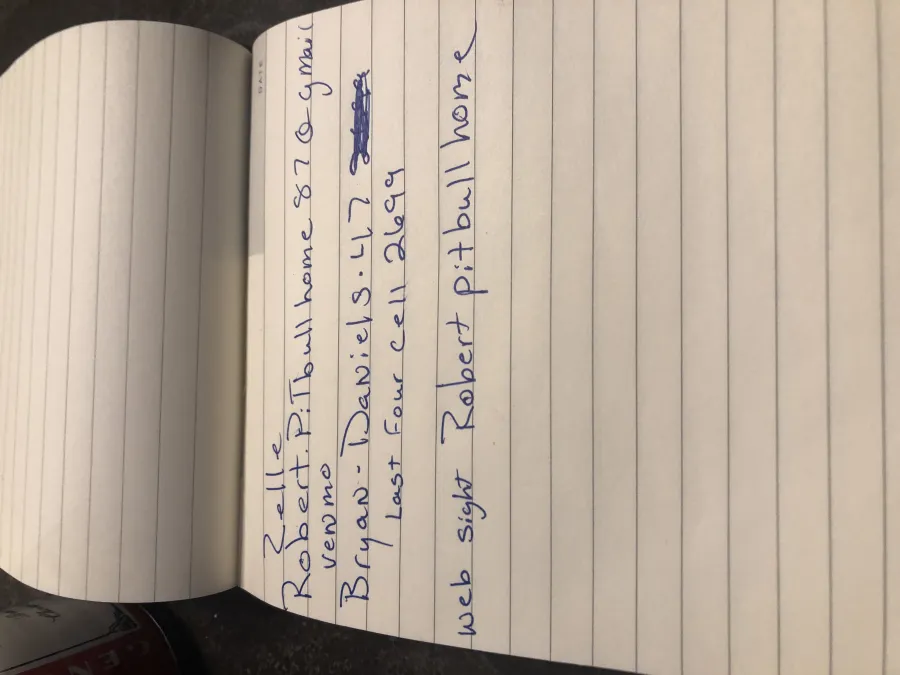 DATE
Zelle
Robert.PiTbullhome87@gmail
venmo
Bryan-Daniels.47
Last Four cell 2699
web sight Robertpitbullhome